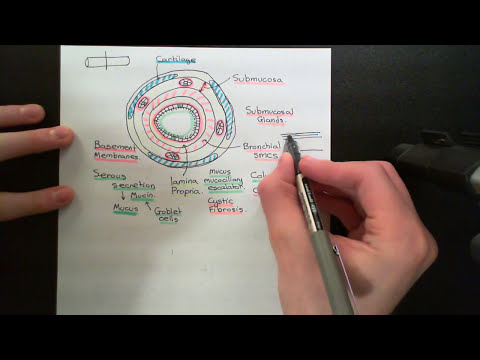 Cartilage
Submucosa
Submucosal
Glands.
Basement
Membranes.
Bronchial
SMCs
Serous
secretion
Mucin
Mucus
Goblet
cells
Lamina
Propria.
Mucus
mucociliary
escalator.
Cystic
Fibrosis.